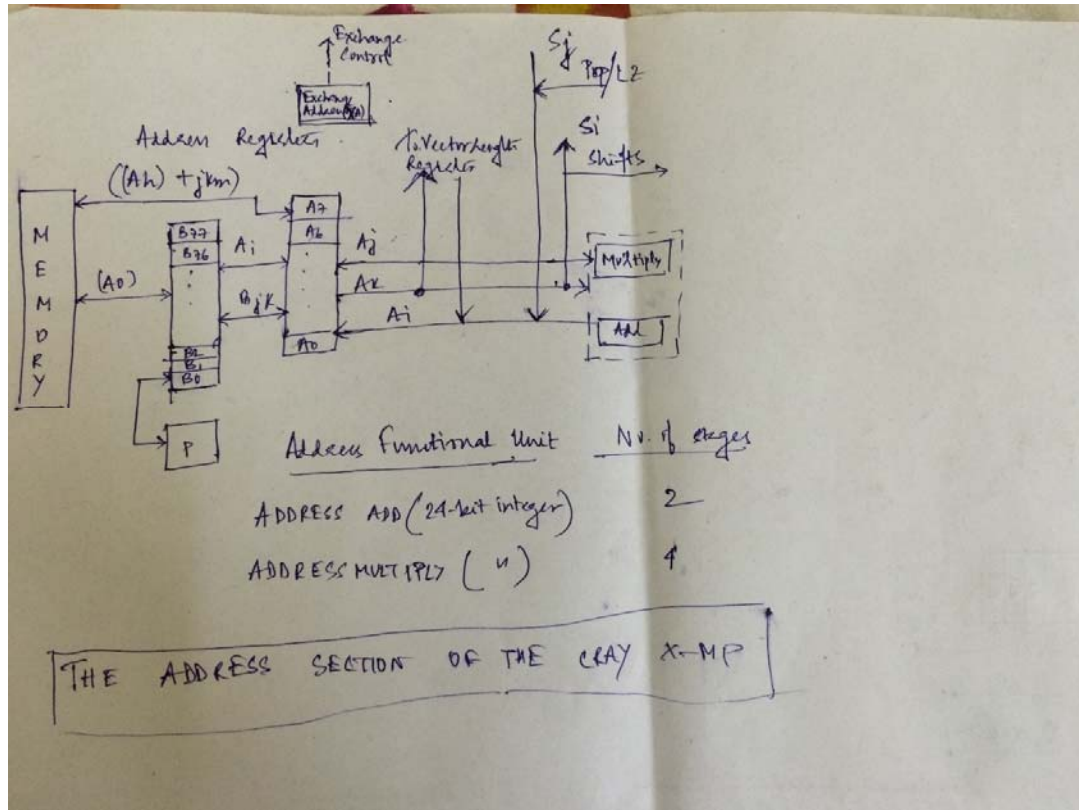 Exchange
Control
Exchange
Address (XA)
Sj
Pop/LZ
Si
Shifts
Address Registers
To Vector Length
Register
((Ah) + jkm)
MEMORY
(A0)
B77
B76
B2
B1
B0
Ai
Bjk
A7
A6
A0
Aj
Ak
Ai
Multiply
Add
P
Address Functional Unit No. of stages
ADDRESS ADD (24-bit integer) 2
ADDRESS MULTIPLY ( " ) 4
THE ADDRESS SECTION OF THE CRAY X-MP